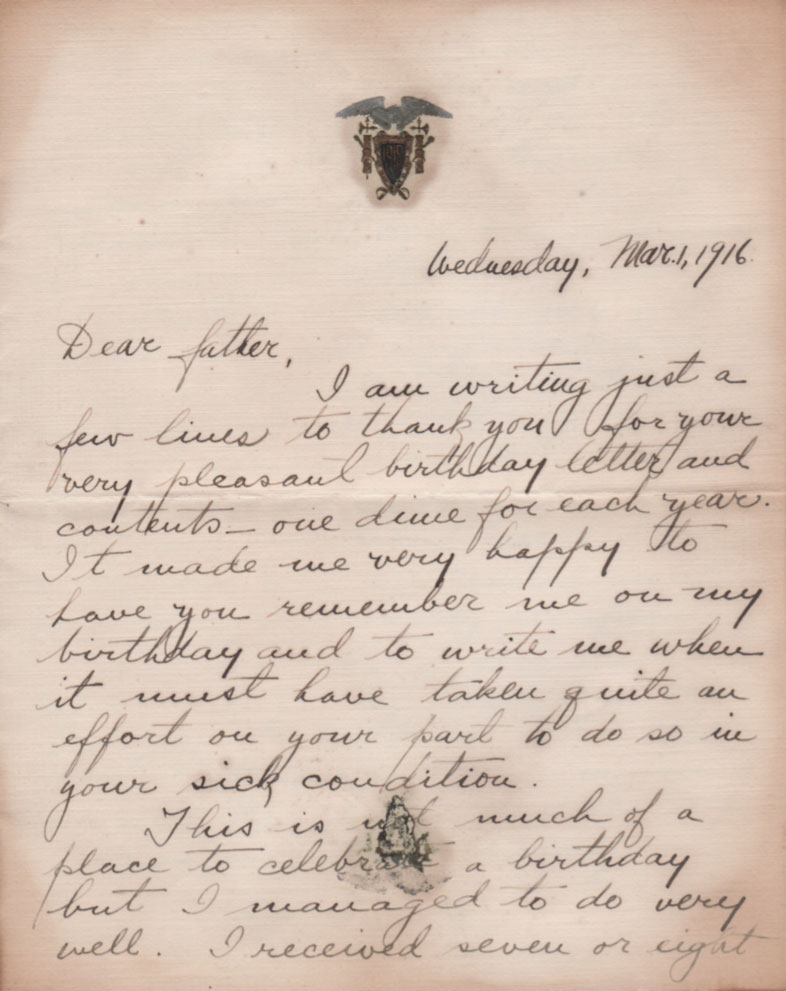 Wednesday, Mar. 1, 1916.
Dear father,
I am writing just a
few lines to thank you for your
very pleasant birthday letter and
contents — one dime for each year.
It made me very happy to
have you remember me on my
birthday and to write me when
it must have taken quite an
effort on your part to do so in
your sick condition.
This is not much of a
place to celebrate a birthday
but I managed to do very
well. I received seven or eight